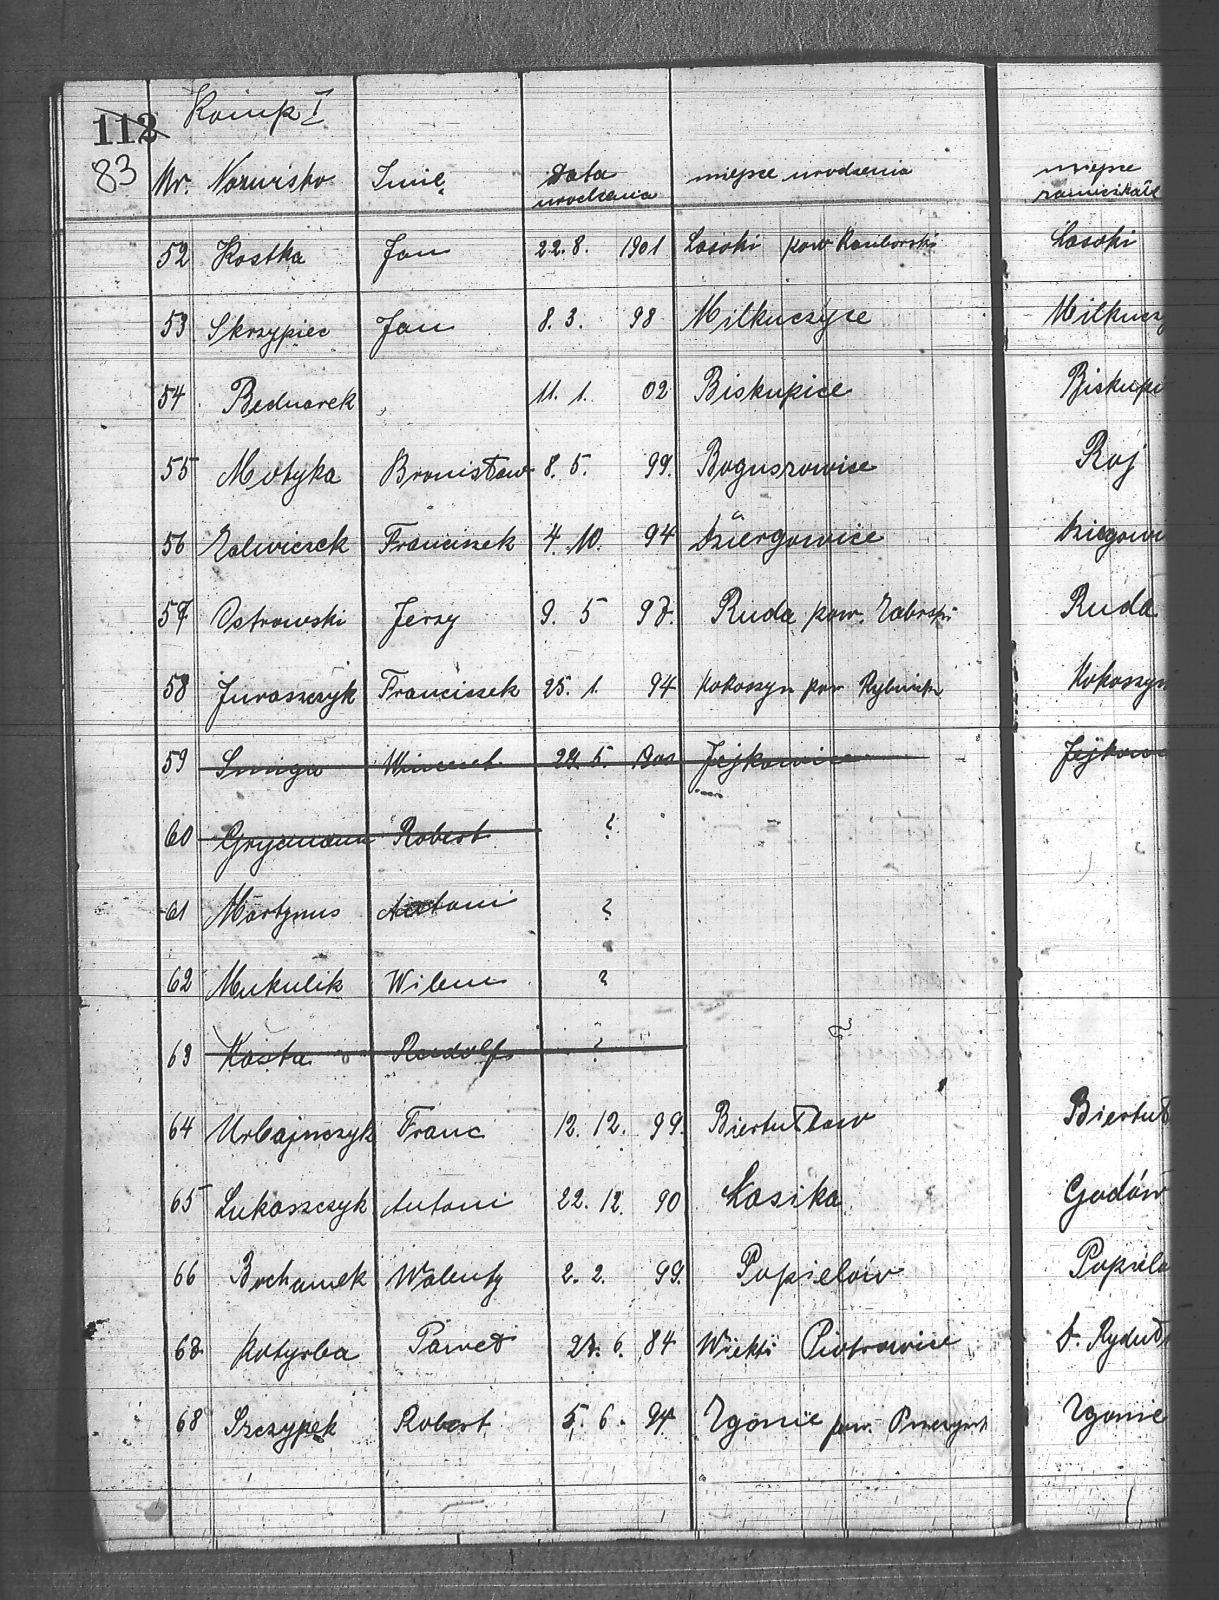 112 Komp I
83 Nr. Nazwisko Imię Data urodzenia miejsce urodzenia miejsce
52 Kostka Jan 22.8. 1901 Łasoki pow Raciborski Łasoki
53 Skrzypiec Jan 8.3. 98 Milkuczyce Milkucz
54 Bednarek 11. 1. 02 Biskupice Biskupi
55 Motyka Bronisław 8. 5. 99. Boguszowice Roj
56 Franciszek 4. 10. 94 Dziergowice
57 Ostrowski Jerzy 9. 5 97. Ruda pow. Zabrski Ruda
58 Juraszczyk Franciszek 25. 1. 94 Kokoszyn pow Rybnicki Kokoszyn
59 Smiga Wincent 5. Jejkowice Jejkow
60 Grycmann Robert ?
61 Martynus Antoni ?
62 Mukulik Wilem ?
63 Kosta Rudolf ?
64 Urbajnczyk Franc 12. 12. 99. Biertułtow Biertuł
65 Lukaszczyk Antoni 22. 12. 90 Łasika Godów
66 Walenty 2. 2. 99. Popielów Popielo
67 Kotyrba Paweł 6. 84 Piotrowice
68 Szczypek Robert 5. 6. 94. Zgonie pow. Zgonie